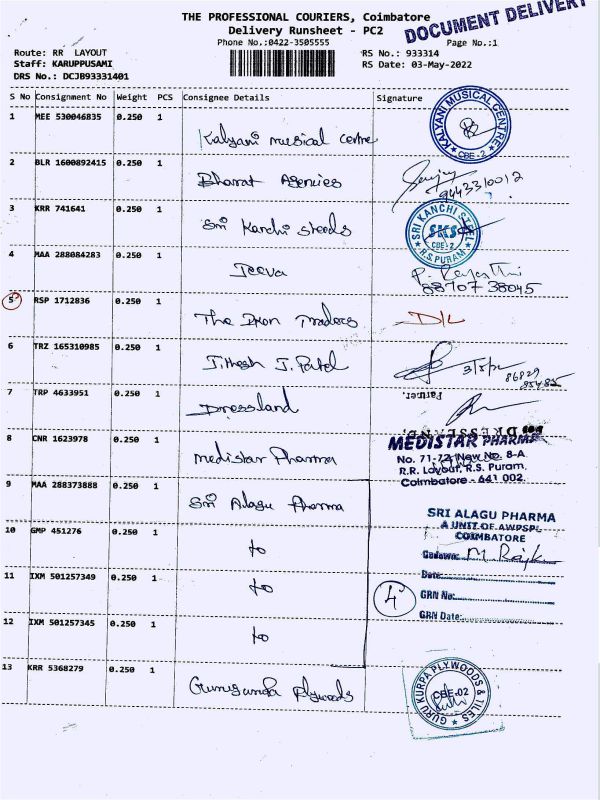 THE PROFESSIONAL COURIERS, Coimbatore
DOCUMENT DELIVERY
Delivery Runsheet - PC2
Phone No.:0422-3505555
Page No.:1
Route: RR LAYOUT
RS No.: 933314
Staff: KARUPPUSAMI
RS Date: 03-May-2022
DRS No.: DCJB93331401
S No Consignment No Weight PCS Consignee Details Signature
1 MEE 530046835 0.250 1
Kalyani musical centre
KALYANI MUSICAL CENTRE
CBE-2
2 BLR 1600892415 0.250 1
Bharat Agencies
3 KRR 741641 0.250 1
Sri Kanchi steeds
SRI KANCHI STEEL
SKS
CBE-2
R.S. PURAM
4 MAA 288084283 0.250 1
Jeeva
88707 38045
5 RSP 1712836 0.250 1
The Iron Traders D/L
6 TRZ 165310985 0.250 1
Jithesh J. Patel
3/5/22
7 TRP 4633951 0.250 1
Partner.
Dressland
8 CNR 1623978 0.250 1
Medistar Pharma
MEDISTAR PHARMA
No. 71-72 New No. 8-A
R.R. Layout, R.S. Puram,
Coimbatore - 641 002.
9 MAA 288373888 0.250 1
Sri Alagu Pharma
SRI ALAGU PHARMA
A UNIT OF AWPSPL
COIMBATORE
10 GMP 451276 0.250 1
to
M. Rajk
11 IXM 501257349 0.250 1
to
Date:
4
GRN No:
GRN Date:
12 IXM 501257345 0.250 1
to
13 KRR 5368279 0.250 1
Plywoods
GURU KURPA PLYWOODS & TILES
CBE-02